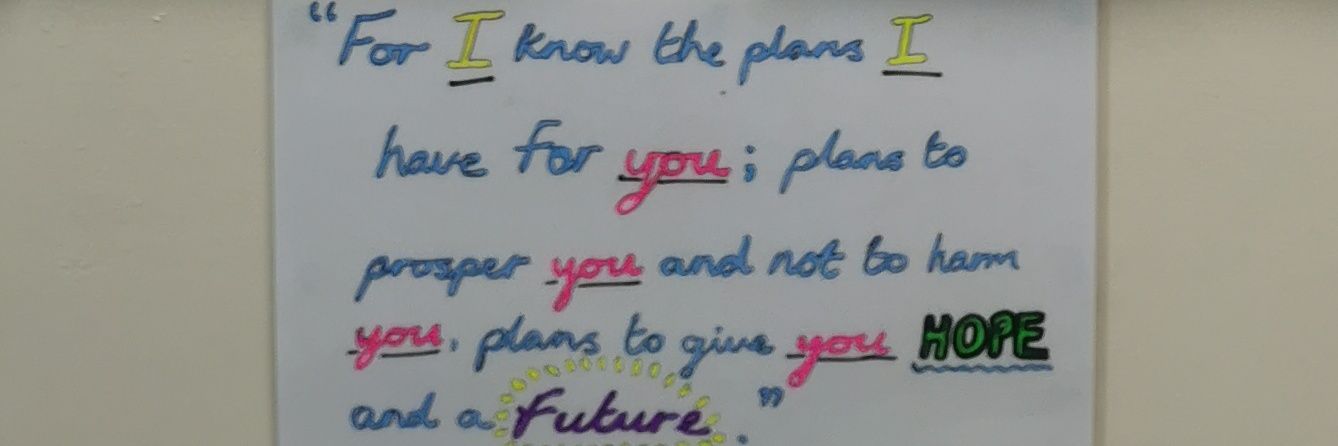 “For I know the plans I
have for you; plans to
prosper you and not to harm
you. plans to give you HOPE
and a Future.”